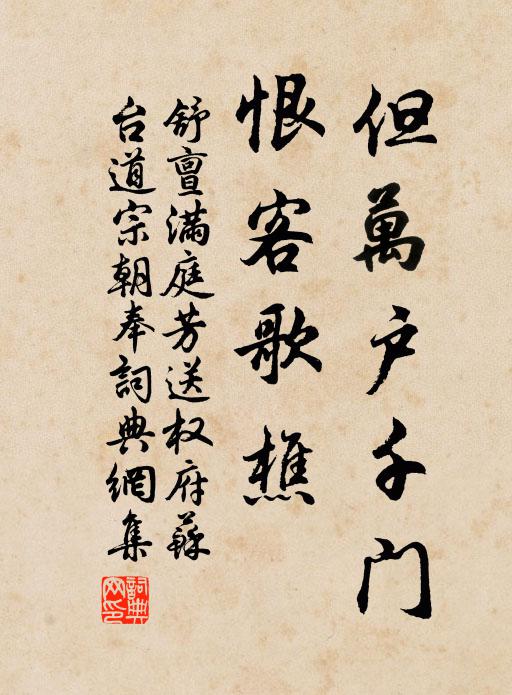 但萬户千门
恨客歌樵
舒亶满庭芳送权府蘇
台道宗朝奉詞典網集
詞典网印